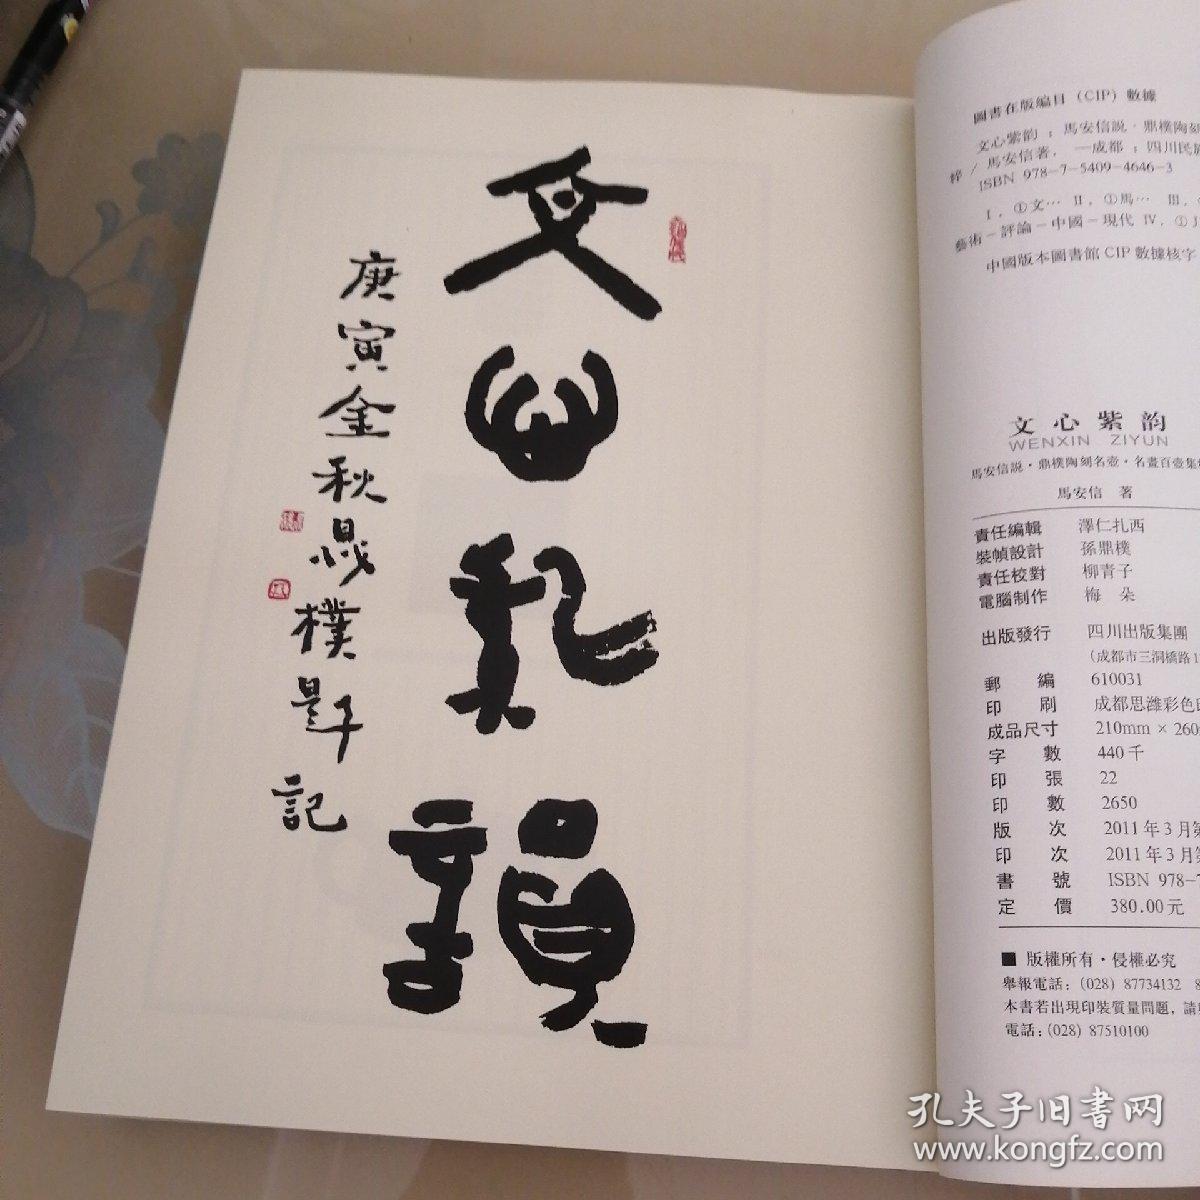 文心紫韻
庚寅金秋鼎樸題記
圖書在版編目（CIP）數據
文心紫韵：馬安信説·鼎樸陶刻
粹／馬安信著．—成都：四川民族
ISBN 978-7-5409-4646-3
Ⅰ．①文… Ⅱ．①馬… Ⅲ．
藝術－評論－中國－現代 Ⅳ．①J
中國版本圖書館CIP數據核字
文心紫韵
WENXIN ZIYUN
馬安信説·鼎樸陶刻名壺·名畫百壺集
馬安信 著
責任編輯 澤仁扎西
裝幀設計 孫鼎樸
責任校對 柳青子
電腦制作 梅 朵
出版發行 四川出版集團
（成都市三洞橋路1
郵 編 610031
印 刷 成都思濰彩色
成品尺寸 210mm × 260
字 數 440千
印 張 22
印 數 2650
版 次 2011年3月第
印 次 2011年3月第
書 號 ISBN 978-7
定 價 380.00元
■ 版權所有·侵權必究
舉報電話：(028) 87734132 8
本書若出現印裝質量問題，請
電話：(028) 87510100
孔夫子旧书网
www.kongfz.com